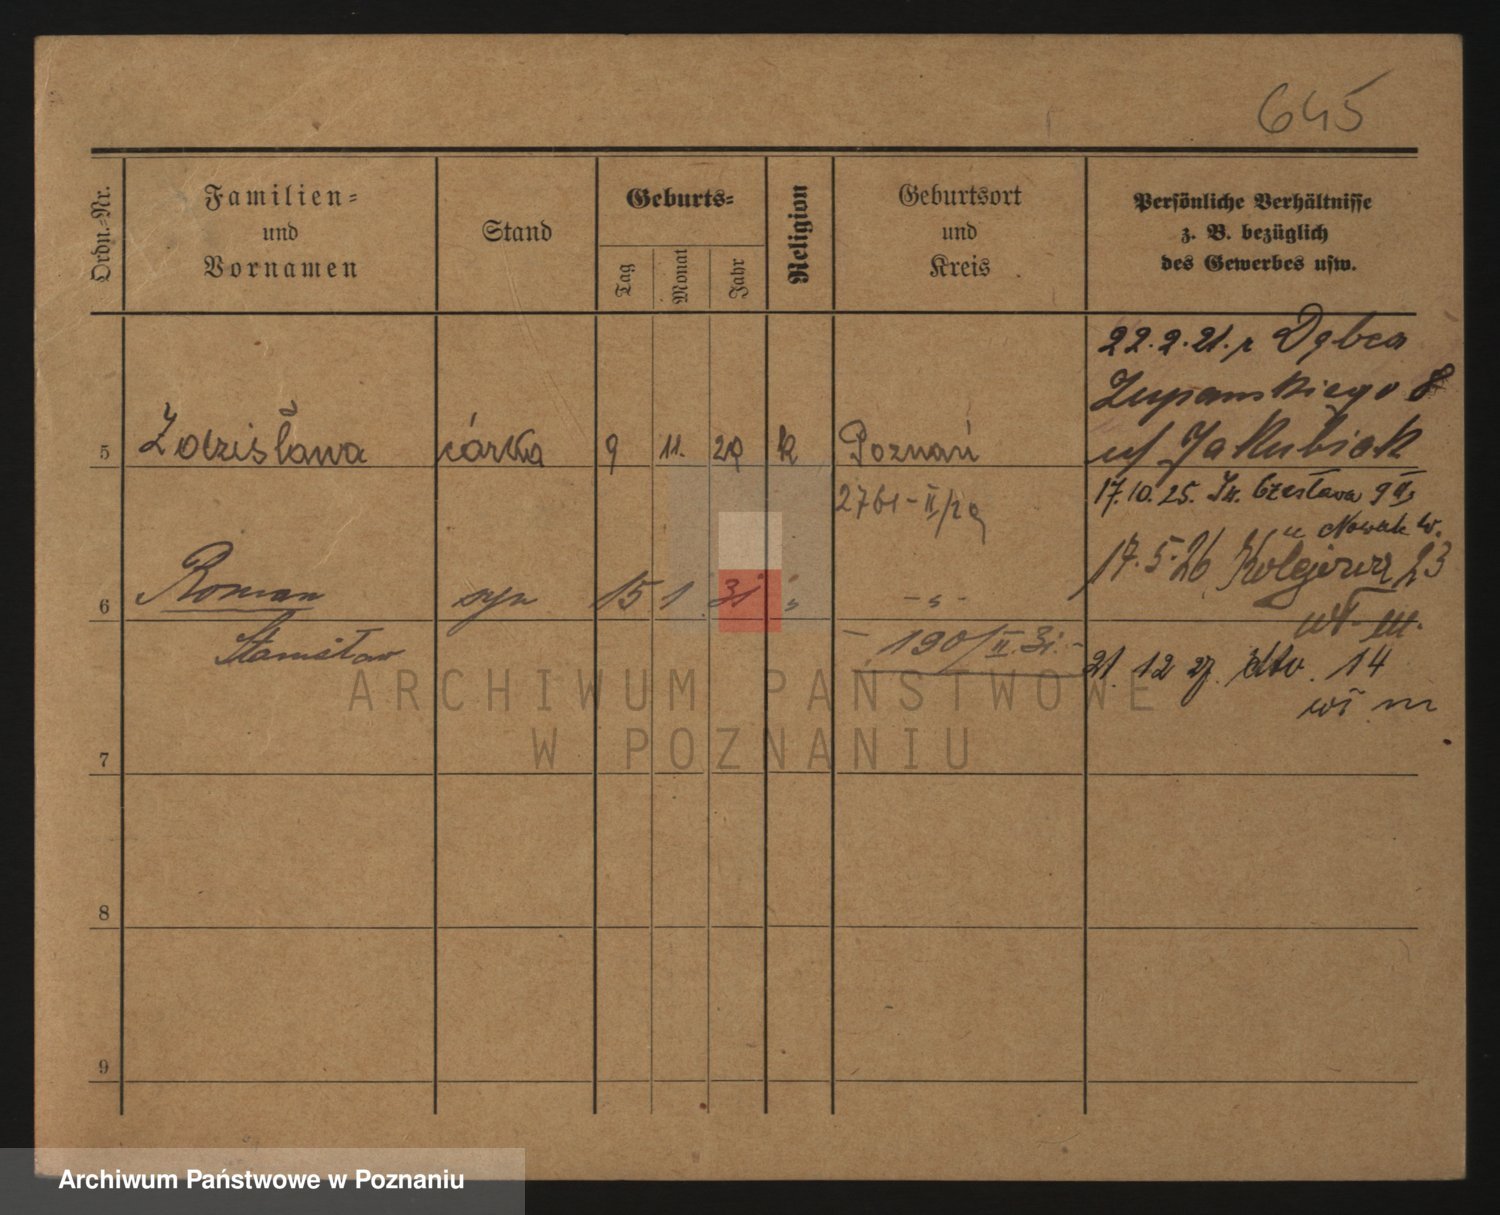 645
Ordn.-Nr.
Familien-
und
Vornamen
Stand
Geburts-
Tag
Monat
Jahr
Religion
Geburtsort
und
Kreis
Persönliche Verhältnisse
z. B. bezüglich
des Gewerbes usw.
22.2.21. Dębca
Zupanskiego 8
Jakubiak
5 Zdzisława córka 9 11. 29 k Poznań
2761-II/29
17.10.25. Czesława
u Nowak
17.5.26 23
6 Roman syn 15 1 31 " -"-
Stanisław
190/II.31.-
21. 12 dto. 14
m
ARCHIWUM PAŃSTWOWE
W POZNANIU
7
8
9
Archiwum Państwowe w Poznaniu